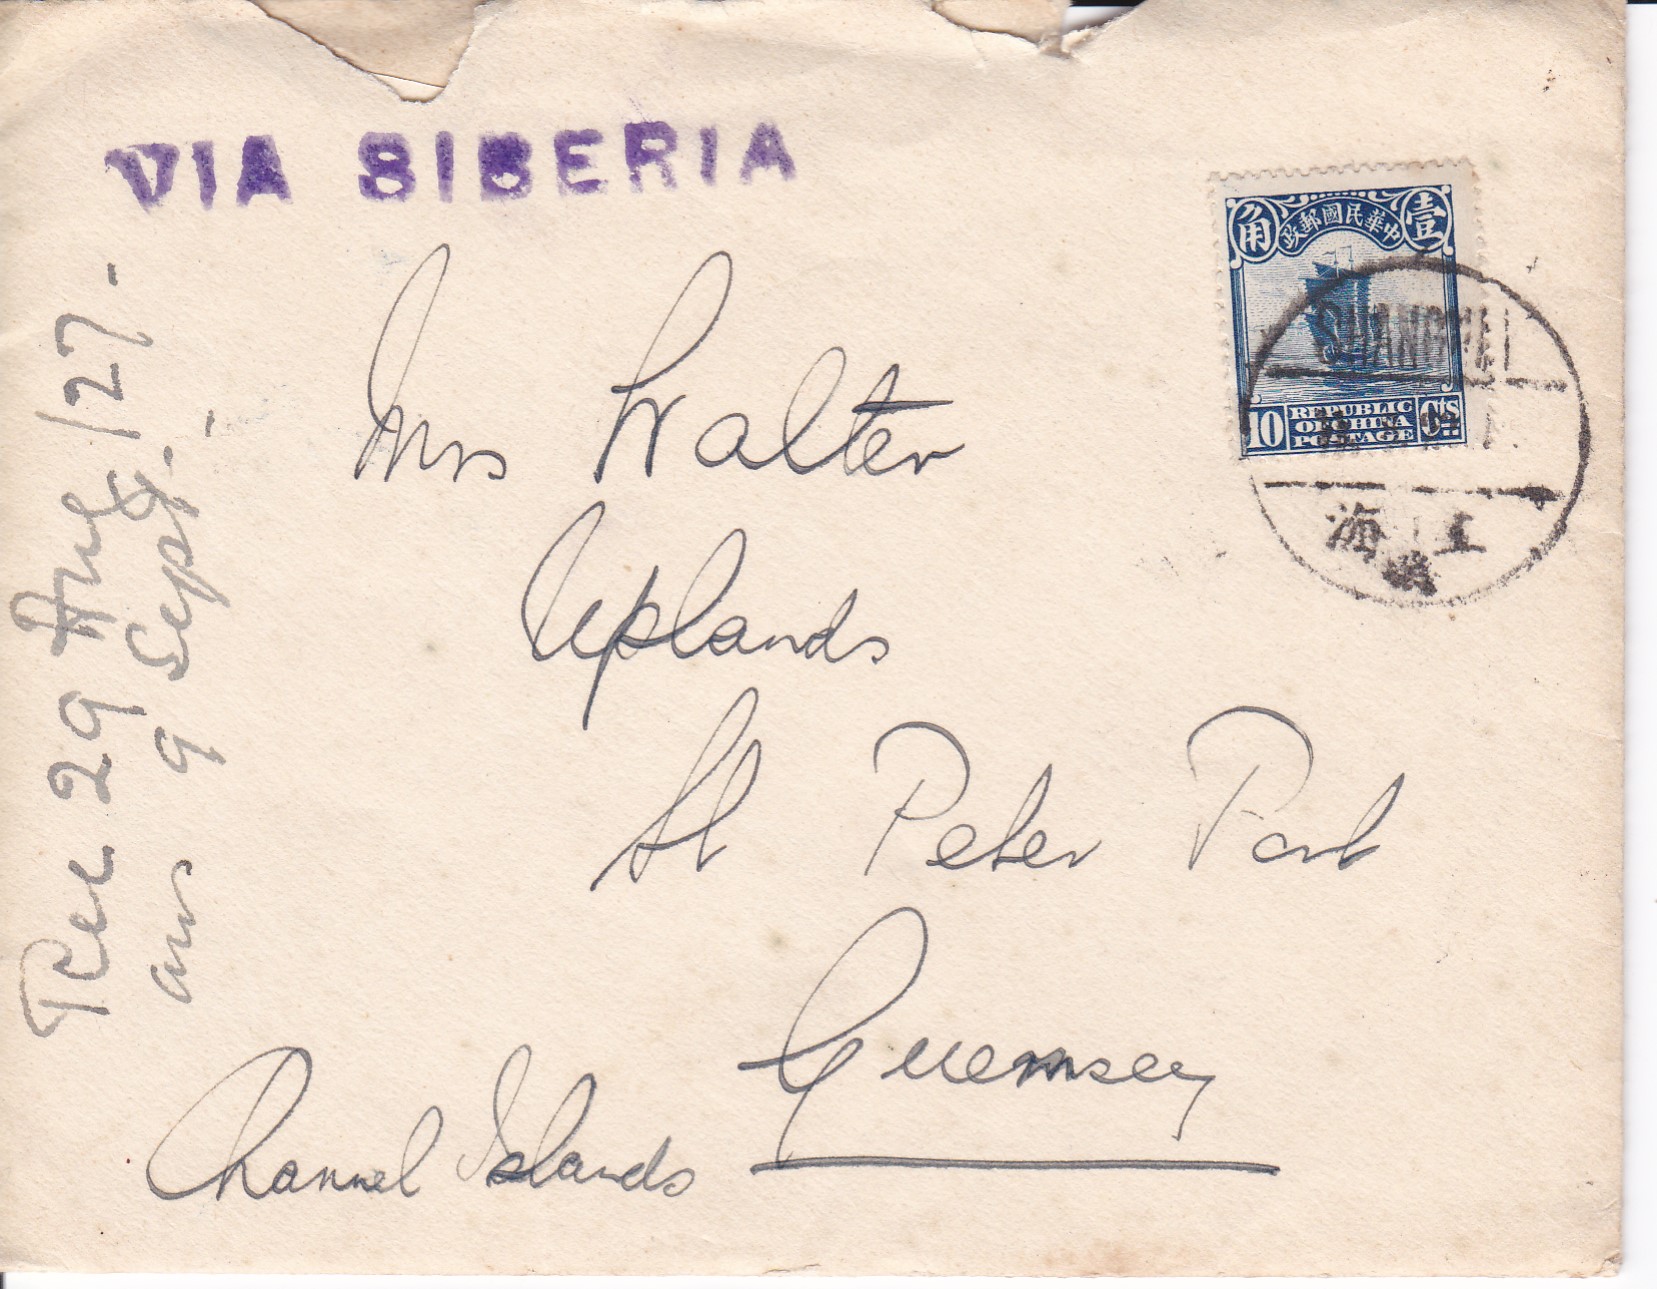 VIA SIBERIA
角 政郵國民華中 壹
SHANGHAI
10 REPUBLIC OF CHINA POSTAGE Cts
海 上
Mrs Walter
Uplands
St Peter Port
Guernsey
Channel Islands
Rec 29 Aug /27 -
ans 9 Sept. -